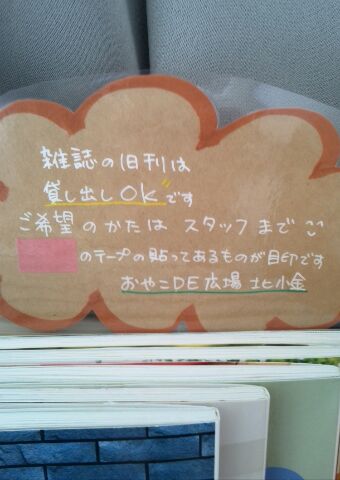 雑誌の旧刊は
貸し出しOKです
ご希望のかたは スタッフまで
のテープの貼ってあるものが目印です
おやこDE広場 北小金